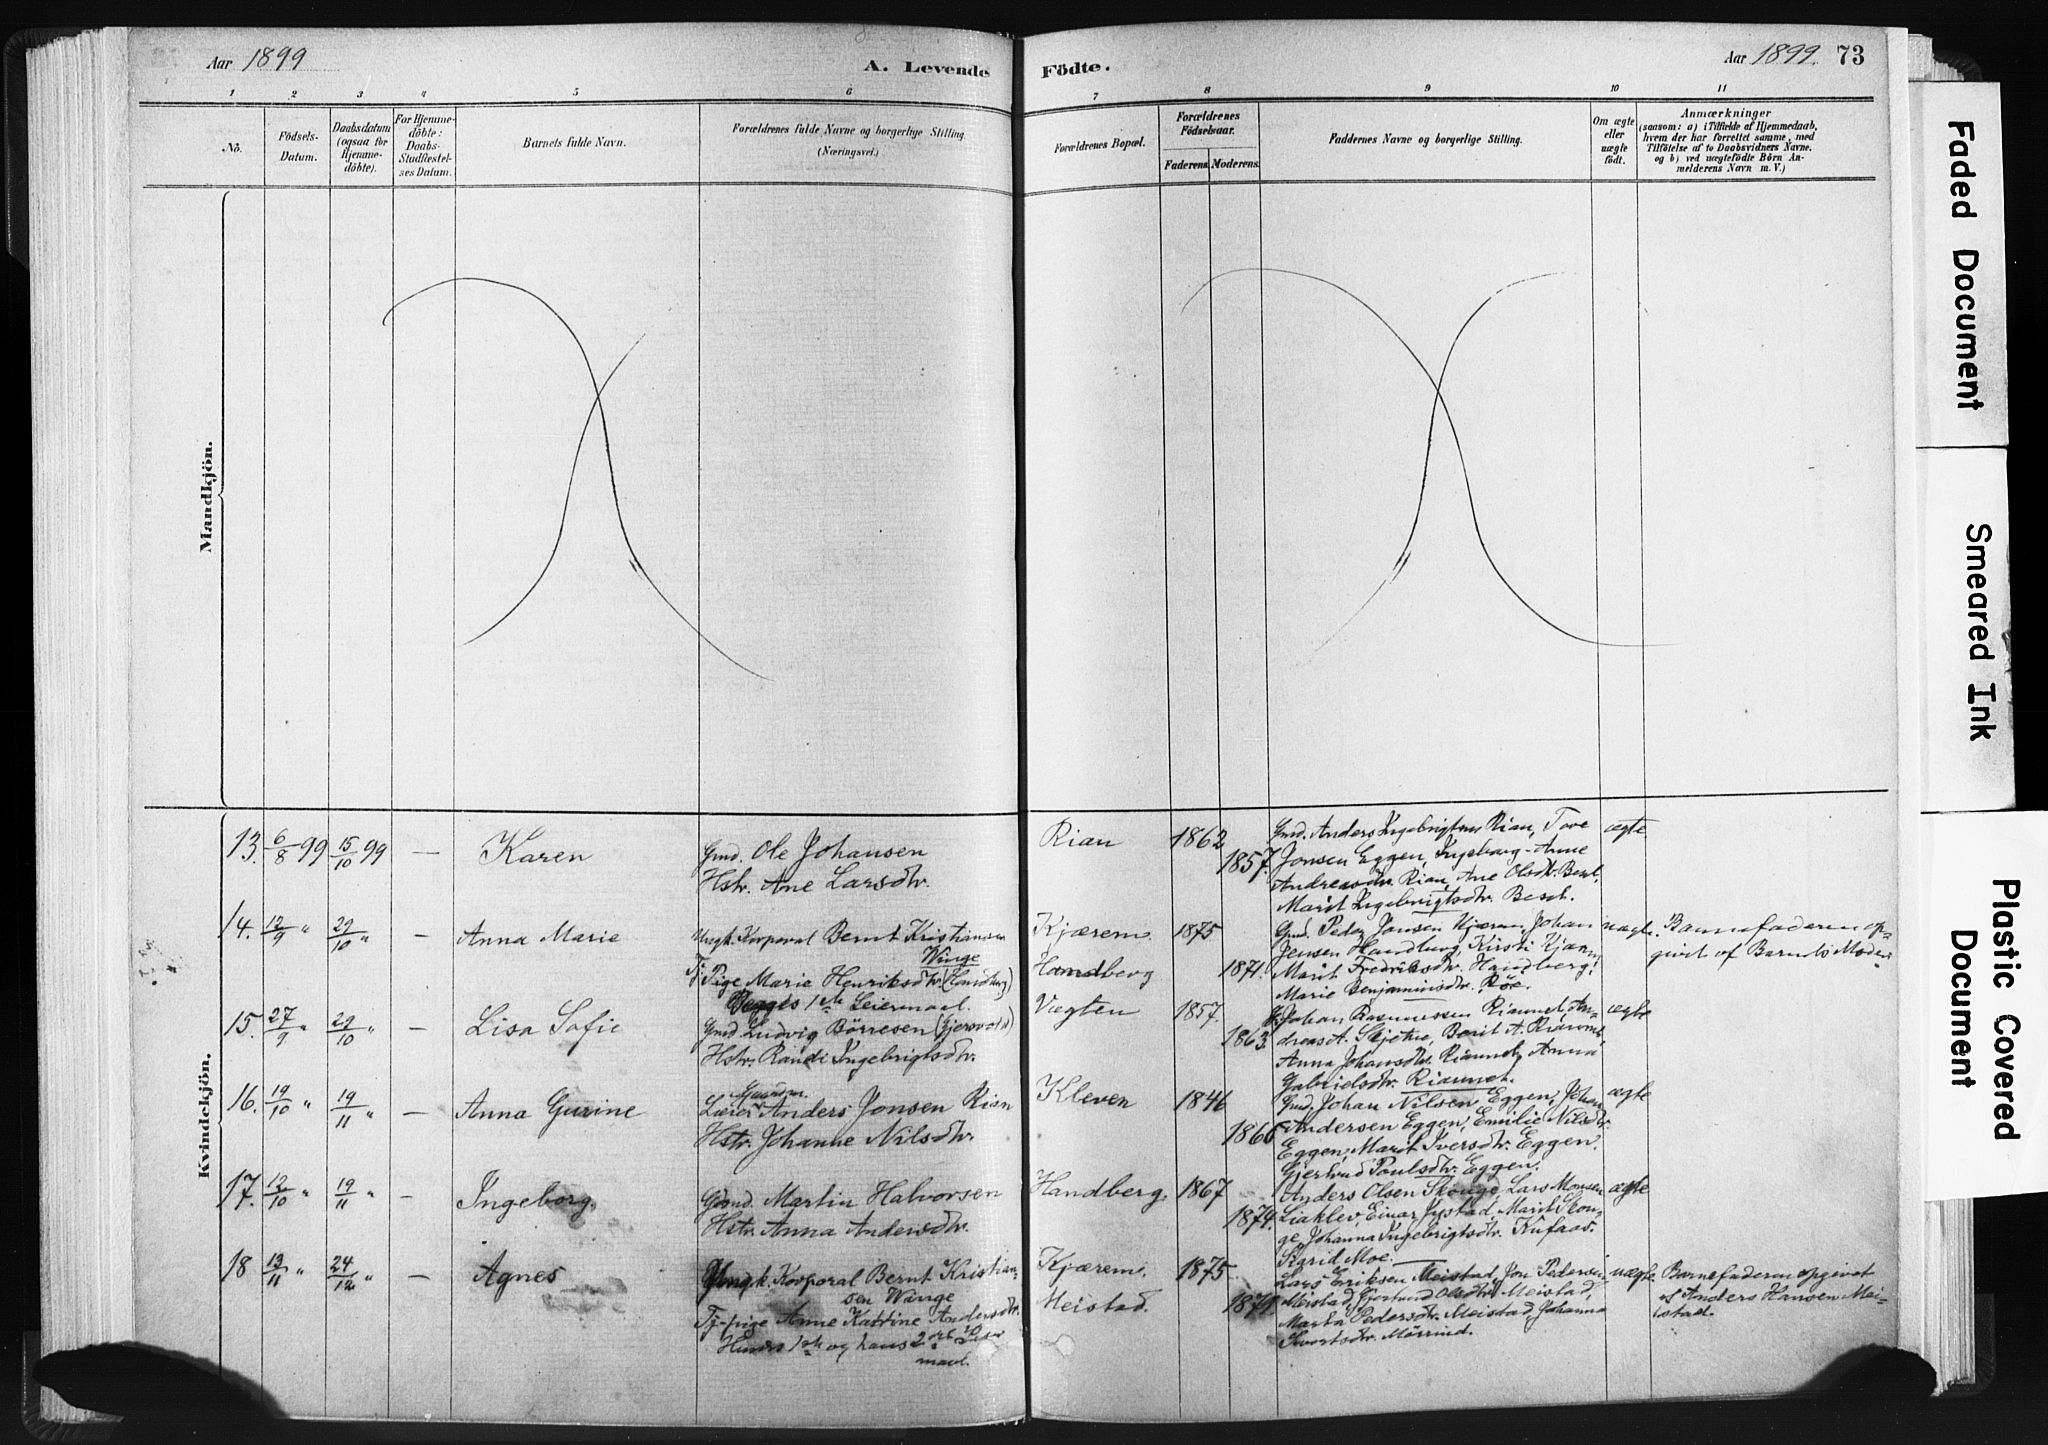 Aar 1899
A. Levende Födte.
Aar 1899. 73
1 2 3 4 5 6 7 8 9 10 11
No.
Födsels-
Datum.
Daabsdatum
(ogsaa for
Hjemme-
döbte).
For Hjemme-
döbte:
Daabs-
Stadfæstel-
ses Datum.
Barnets fulde Navn.
Forældrenes fulde Navne og borgerlige Stilling.
(Næringsvei.)
Forældrenes Bopæl.
Forældrenes
Födselsaar.
Faderens. Moderens.
Faddernes Navne og borgerlige Stilling.
Om ægte
eller
uægte
födt.
Anmærkninger
(saasom: a) i Tilfælde af Hjemmedaab,
hvem der har forrettet samme, med
Tilföielse af to Daabsvidners Navne.
og b) ved uægtefödte Börn An-
melderens Navn m. V.)
Mandkjön.
Kvindekjön.
13. 6/8 99 15/10 99 — Karen
Gmd. Ole Johansen
Hstr. Ane Larsdtr.
Rian 1862
1857.
Gmd. Anders Ingebrigtsen Rian, Tore
Jonsen Eggen, Ingeborg-Anne
Andreasdtr. Rian, Ane Olsdtr. Besk,
Marit Ingebrigtsdtr. Besk.
ægte
14. 12/9 " 29/10 " — Anna Marie
Ungk. Korporal Bernt Kristiansen
Winge
Tj. Pige Marie Henriksdtr. (Handberg)
Begges 1ste Leiermaal.
Kjærem. 1875
Handberg 1871.
Gmd. Peder Jonsen Kjærem, Johan
Jensen Handberg, Kirsti Kjærem,
Marit Fredriksdtr. Handberg,
Marie Benjaminsdtr. Röe.
uægte. Barnefaderen op-
givet af Barnets Moder
15. 27/9 " 29/10 " — Lisa Sofie
Gmd. Ludvig Börresen (Gjersvold)
Hstr. Randi Ingebrigtsdtr.
Vægten 1857.
1863.
Johan Rasmussen Rianmet, An-
dreas A. Skjetne, Berit A. Rianmet,
Anna Johansdtr. Rianmet, Anna
Gabrielsdtr. Rianmet.
ægte
16. 19/10 " 19/11 " — Anna Gurine
Gaardm.
Lærer Anders Jonsen Rian
Hstr. Johanne Nilsdtr.
Kleven 1846
1866
Gmd. Johan Nilsen Eggen, Johan
Andersen Eggen, Emilie Nilsdtr.
Eggen, Marit Iversdtr. Eggen,
Gjertrud Poulsdtr. Eggen.
ægte
17. 12/10 " 19/11 " — Ingeborg.
Gmd. Martin Halvorsen
Hstr. Anna Andersdtr.
Handberg. 1867
1874.
Anders Olsen Skonge, Lars Monsen
Liaklev, Einar Jystad, Marit Skon-
ge, Johanna Ingebrigtsdtr. Kufaas.
Sigrid Moe.
ægte
18 13/11 " 24/12 " — Agnes
Ungk. Korporal Bernt Kristian-
sen Winge
Tj-pige Anne Katrine Andersdtr.
Hendes 1ste og hans 2det Leier
maal.
Kjærem. 1875
Meistad.
Lars Eriksen Meistad, Jon Pedersen
Meistad, Gjertrud Olsdtr. Meistad,
Marta Pedersdtr. Meistad, Johanna
Sivertsdtr. Mörrind.
uægte. Barnefaderen opgivet
af Anders Hansen Mei-
stad.
Faded Document
Smeared Ink
Plastic Covered
Document